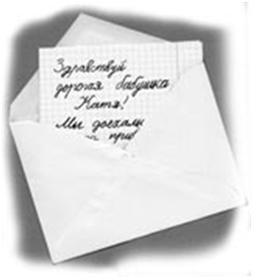 Здравствуй
дорогая бабушка
Катя!
Мы доехали